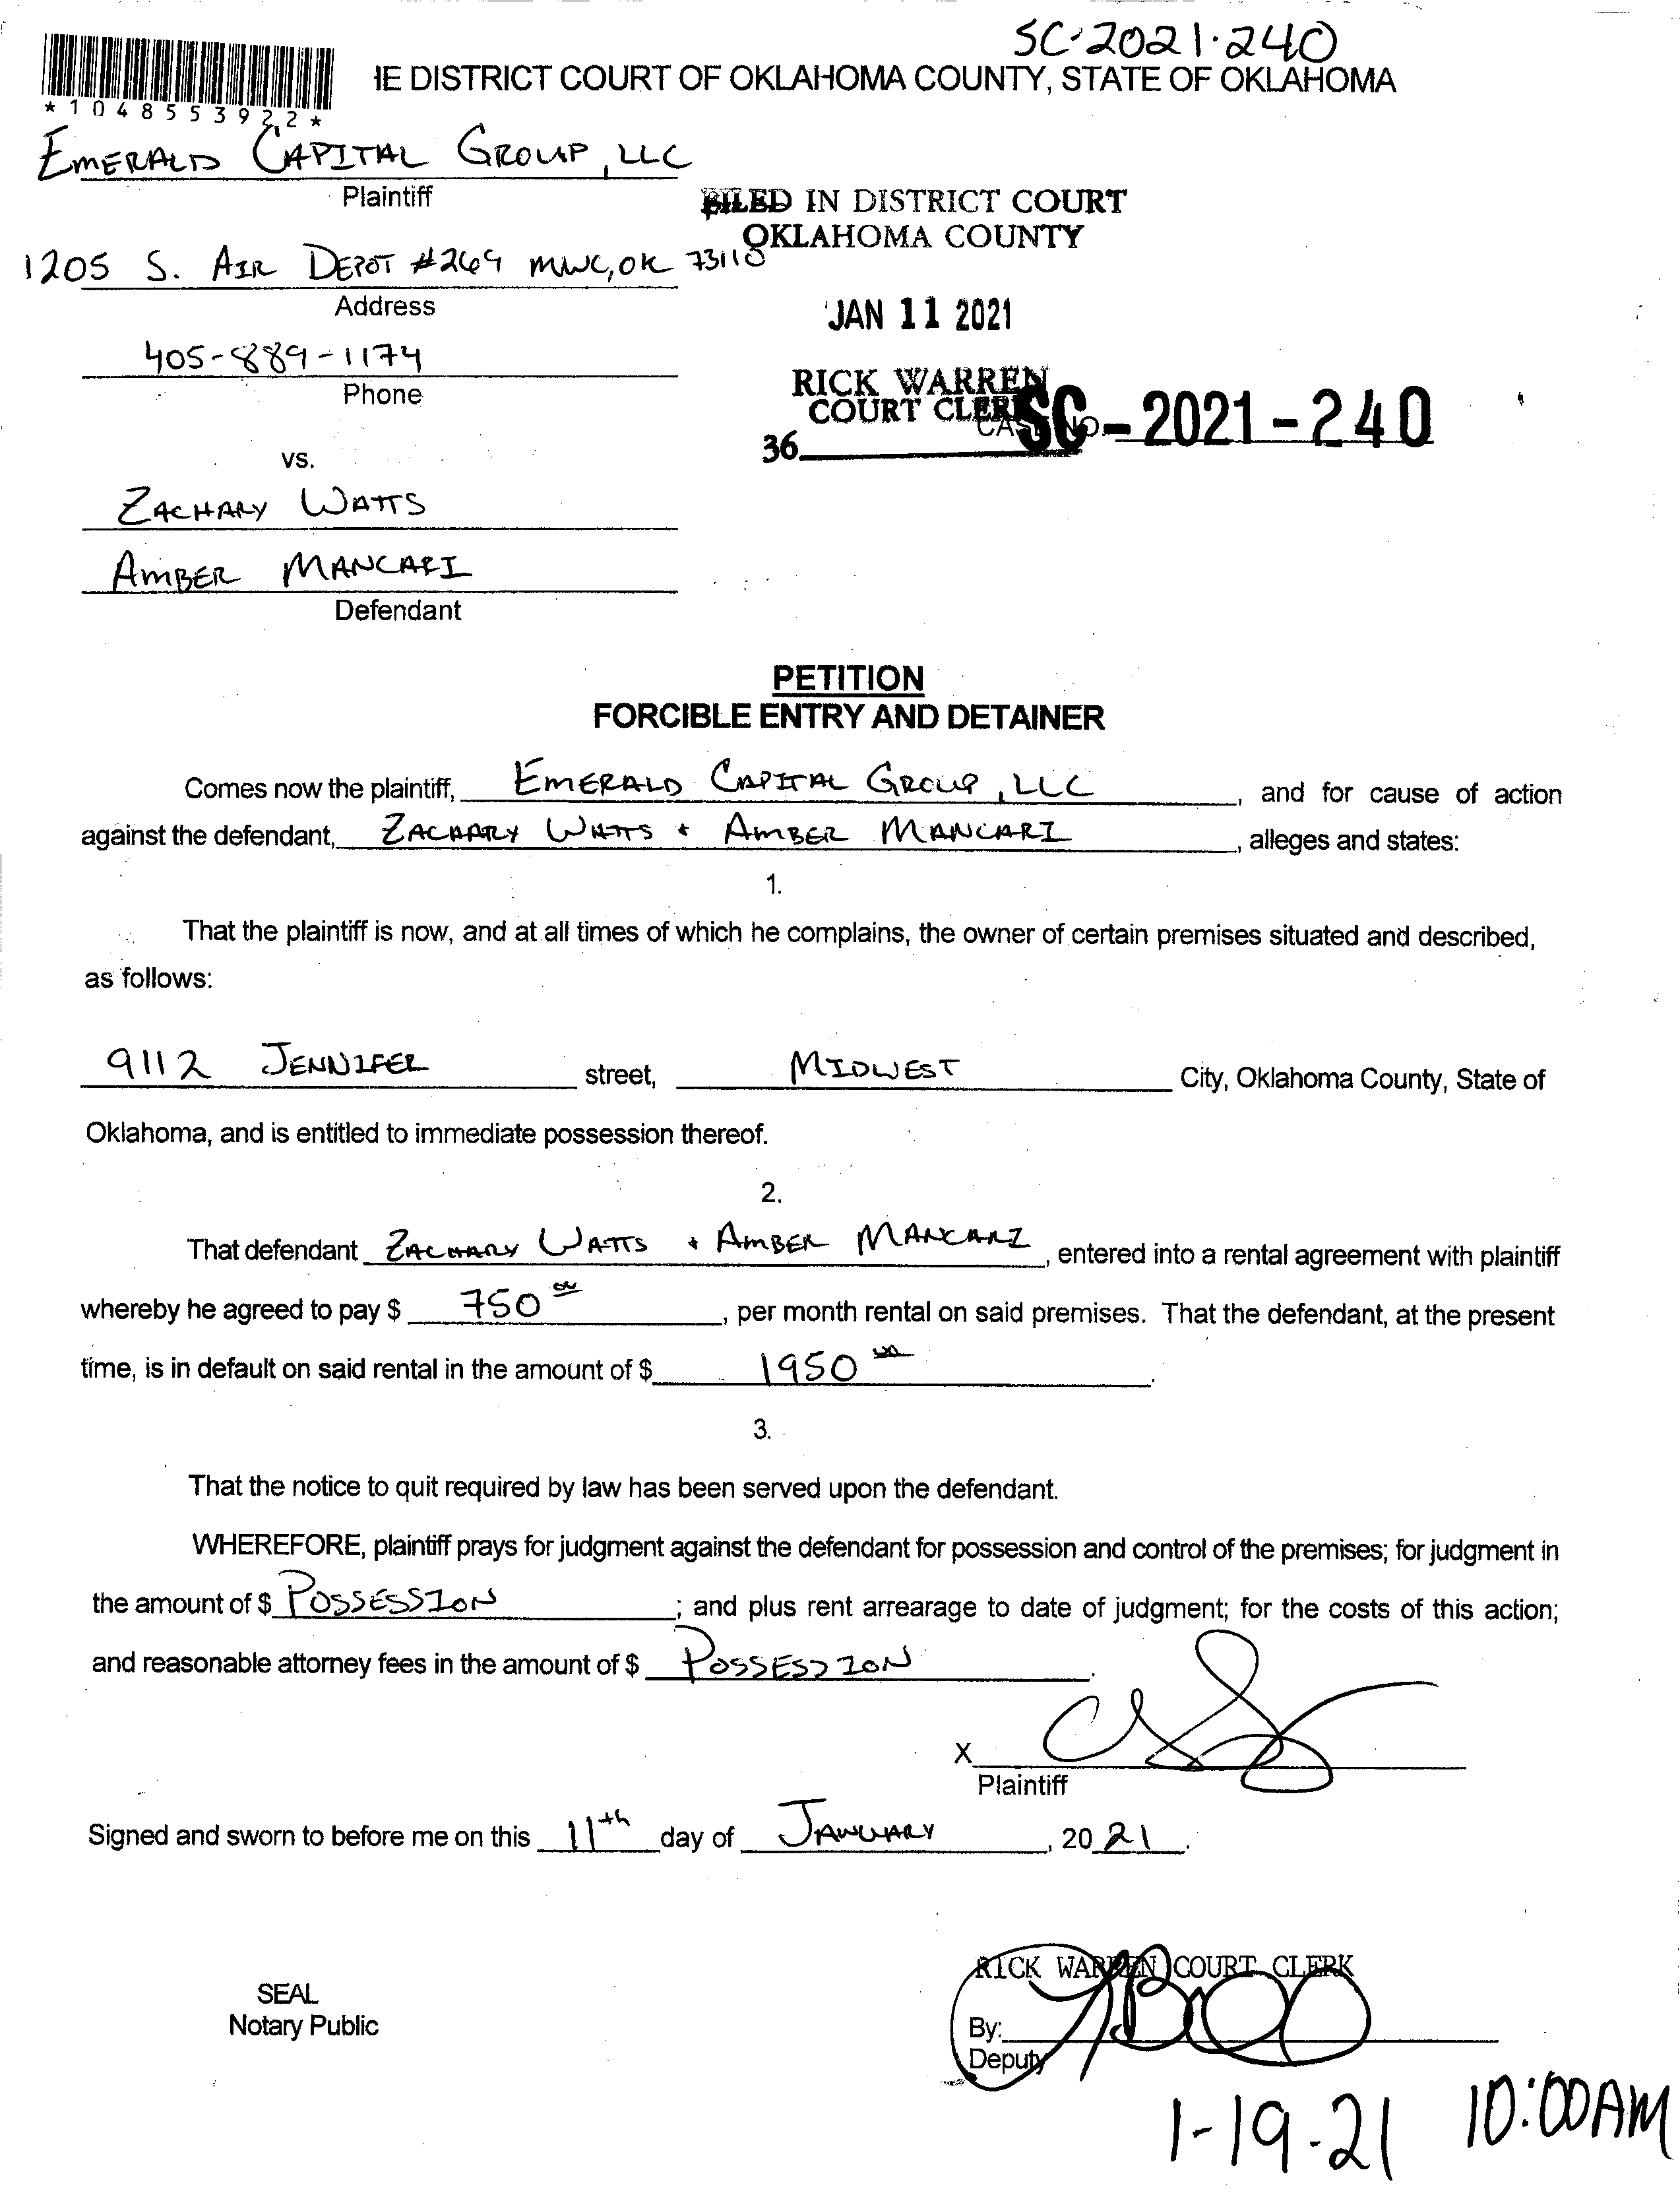 SC-2021-240
IE DISTRICT COURT OF OKLAHOMA COUNTY, STATE OF OKLAHOMA
*1048553922*
EMERALD CAPITAL GROUP, LLC
Plaintiff
FILED IN DISTRICT COURT
OKLAHOMA COUNTY
1205 S. AIR DEPOT #269 MWC, OK 73110
Address
JAN 11 2021
405-889-1174
Phone
RICK WARREN
COURT CLERK
CASE NO. SC-2021-240
36
vs.
ZACHARY WATTS
AMBER MANCARI
Defendant
PETITION
FORCIBLE ENTRY AND DETAINER
Comes now the plaintiff, EMERALD CAPITAL GROUP, LLC, and for cause of action
against the defendant, ZACHARY WATTS + AMBER MANCARI, alleges and states:
1.
That the plaintiff is now, and at all times of which he complains, the owner of certain premises situated and described,
as follows:
9112 JENNIFER street, MIDWEST City, Oklahoma County, State of
Oklahoma, and is entitled to immediate possession thereof.
2.
That defendant ZACHARY WATTS + AMBER MANCARI, entered into a rental agreement with plaintiff
whereby he agreed to pay $ 750 00, per month rental on said premises. That the defendant, at the present
time, is in default on said rental in the amount of $ 1950 00.
3.
That the notice to quit required by law has been served upon the defendant.
WHEREFORE, plaintiff prays for judgment against the defendant for possession and control of the premises; for judgment in
the amount of $ POSSESSION; and plus rent arrearage to date of judgment; for the costs of this action;
and reasonable attorney fees in the amount of $ POSSESSION.
X
Plaintiff
Signed and sworn to before me on this 11th day of JANUARY, 2021.
RICK WARREN COURT CLERK
SEAL
Notary Public
By:
Deputy
1-19-21 10:00AM